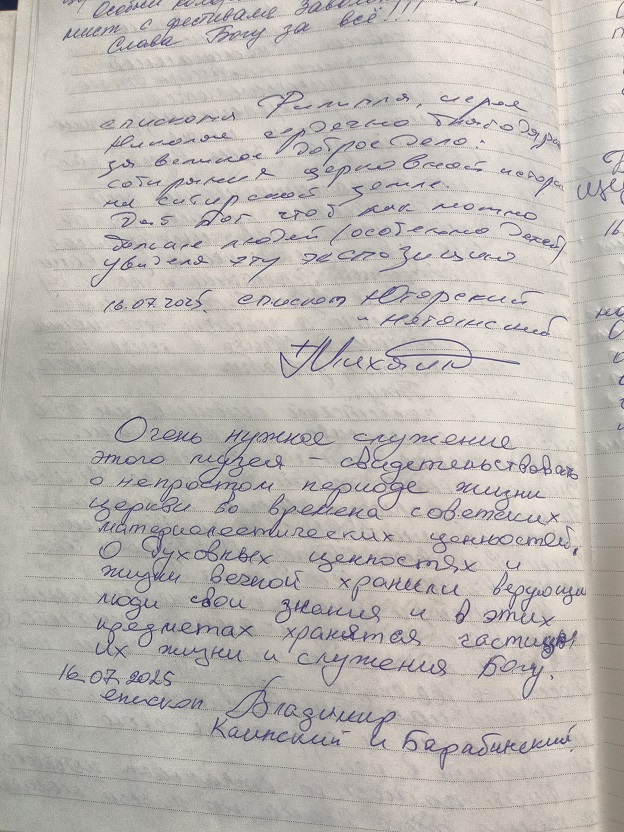 Особый
мист с фестиваля
Слава Богу за всё!!!
епископа Филиппа, иерея
сердечно благодарю
за великое доброе дело:
собирания церковной истории
на сибирской земле.
Дай Бог чтоб как можно
больше людей (особенно детей)
увидели эту экспозицию
16.07.2025. епископ Югорский
и Няганский
+ Михаил
Очень нужное служение
этого музея – свидетельствовать
о непростом периоде жизни
церкви во времена советских
материалестических ценностей.
О духовных ценностях и
жизни вечной хранили верующие
люди свои знания и в этих
предметах хранятся частицы
их жизни и служения Богу.
16.07.2025
епископ Владимир
Каинский и Барабинский.